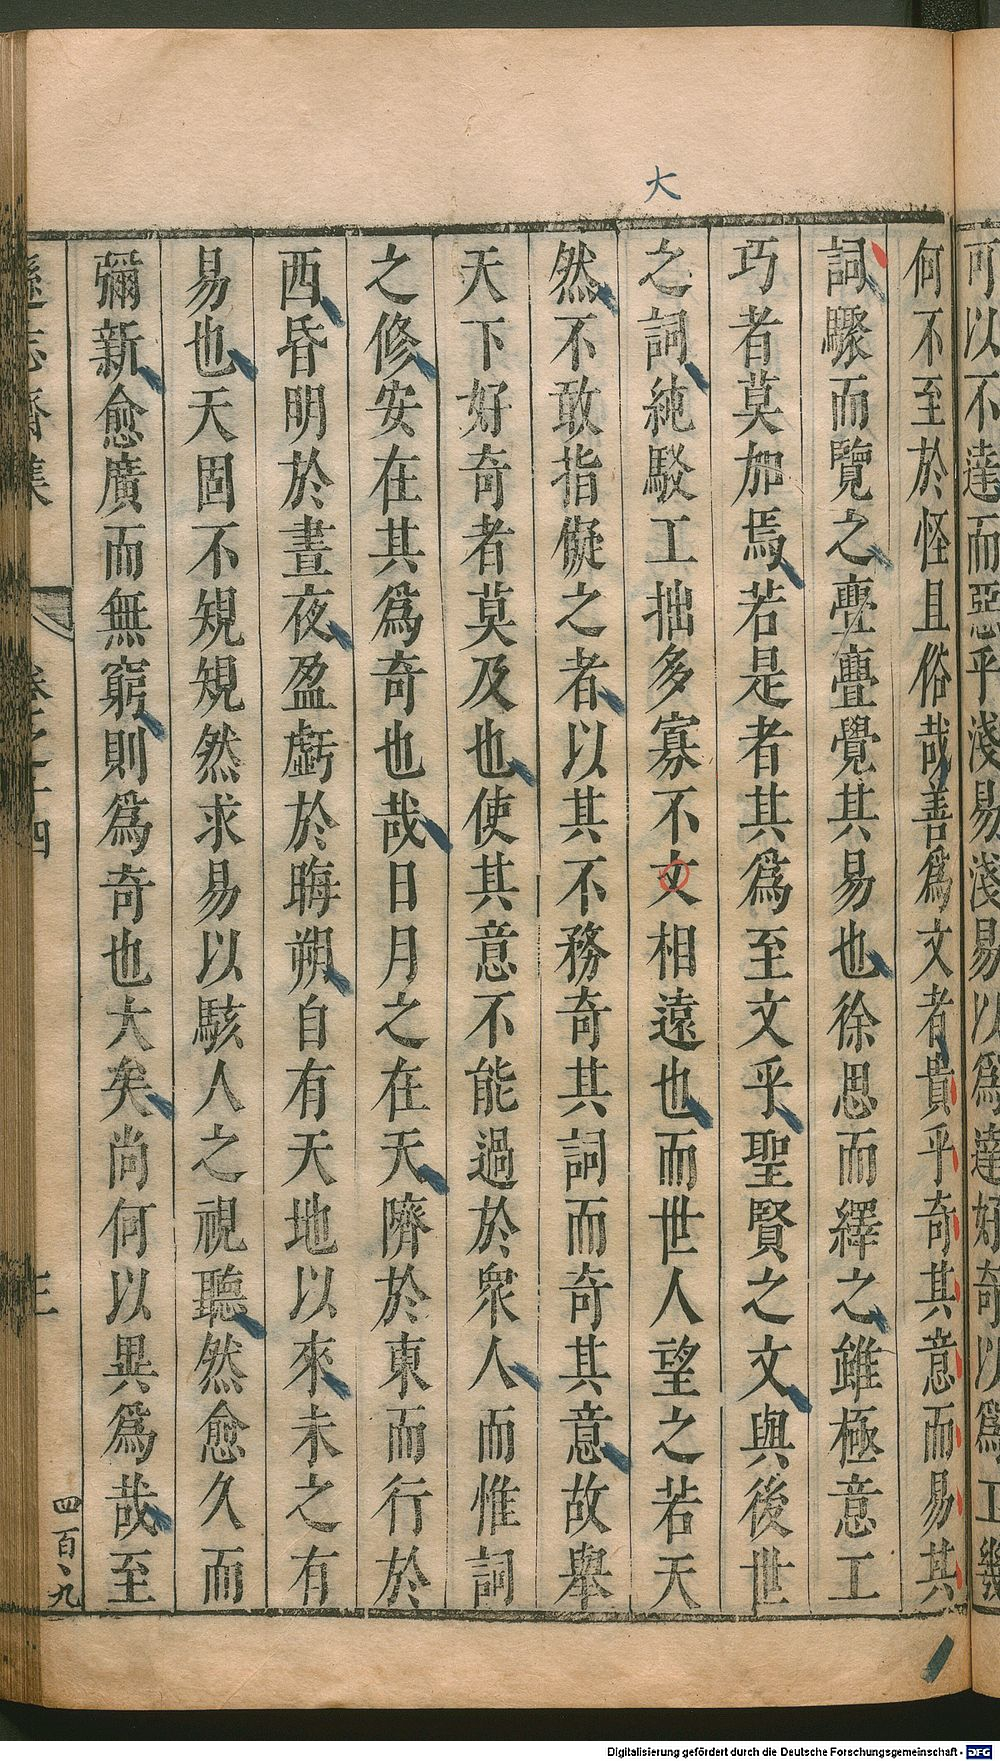 可以不達而惡乎淺易淺易以爲達好奇以爲工幾
何不至於怪且俗哉善爲文者貴乎奇其意而易其
詞驟而覽之亹亹覺其易也徐思而繹之雖極意工
巧者莫加焉若是者其爲至文乎聖賢之文與後世
之詞純駁工拙多寡不文相遠也而世人望之若天
然不敢指儗之者以其不務奇其詞而奇其意故舉
天下好奇者莫及也使其意不能過於衆人而惟詞
之修安在其爲奇也哉日月之在天隮於東而行於
西昏明於晝夜盈虧於晦朔自有天地以來未之有
易也天固不規規然求易以駭人之視聽然愈久而
彌新愈廣而無窮則爲奇也大矣尚何以異爲哉至
大
遜志齋集 卷之十四 三
四百、九
Digitalisierung gefördert durch die Deutsche Forschungsgemeinschaft - DFG